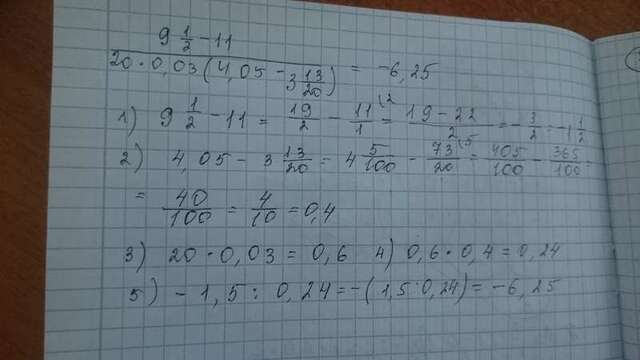 9 1/2 - 11
20 · 0,03 (4,05 - 3 13/20) = -6,25
1) 9 1/2 - 11 = 19/2 - 11/1 (2 = 19-22/2 = -3/2 = -1 1/2
2) 4,05 - 3 13/20 = 4 5/100 - 73/20 (5 = 405/100 - 365/100 =
= 40/100 = 4/10 = 0,4
3) 20 · 0,03 = 0,6 4) 0,6 · 0,4 = 0,24
5) -1,5 : 0,24 = -(1,5 : 0,24) = -6,25